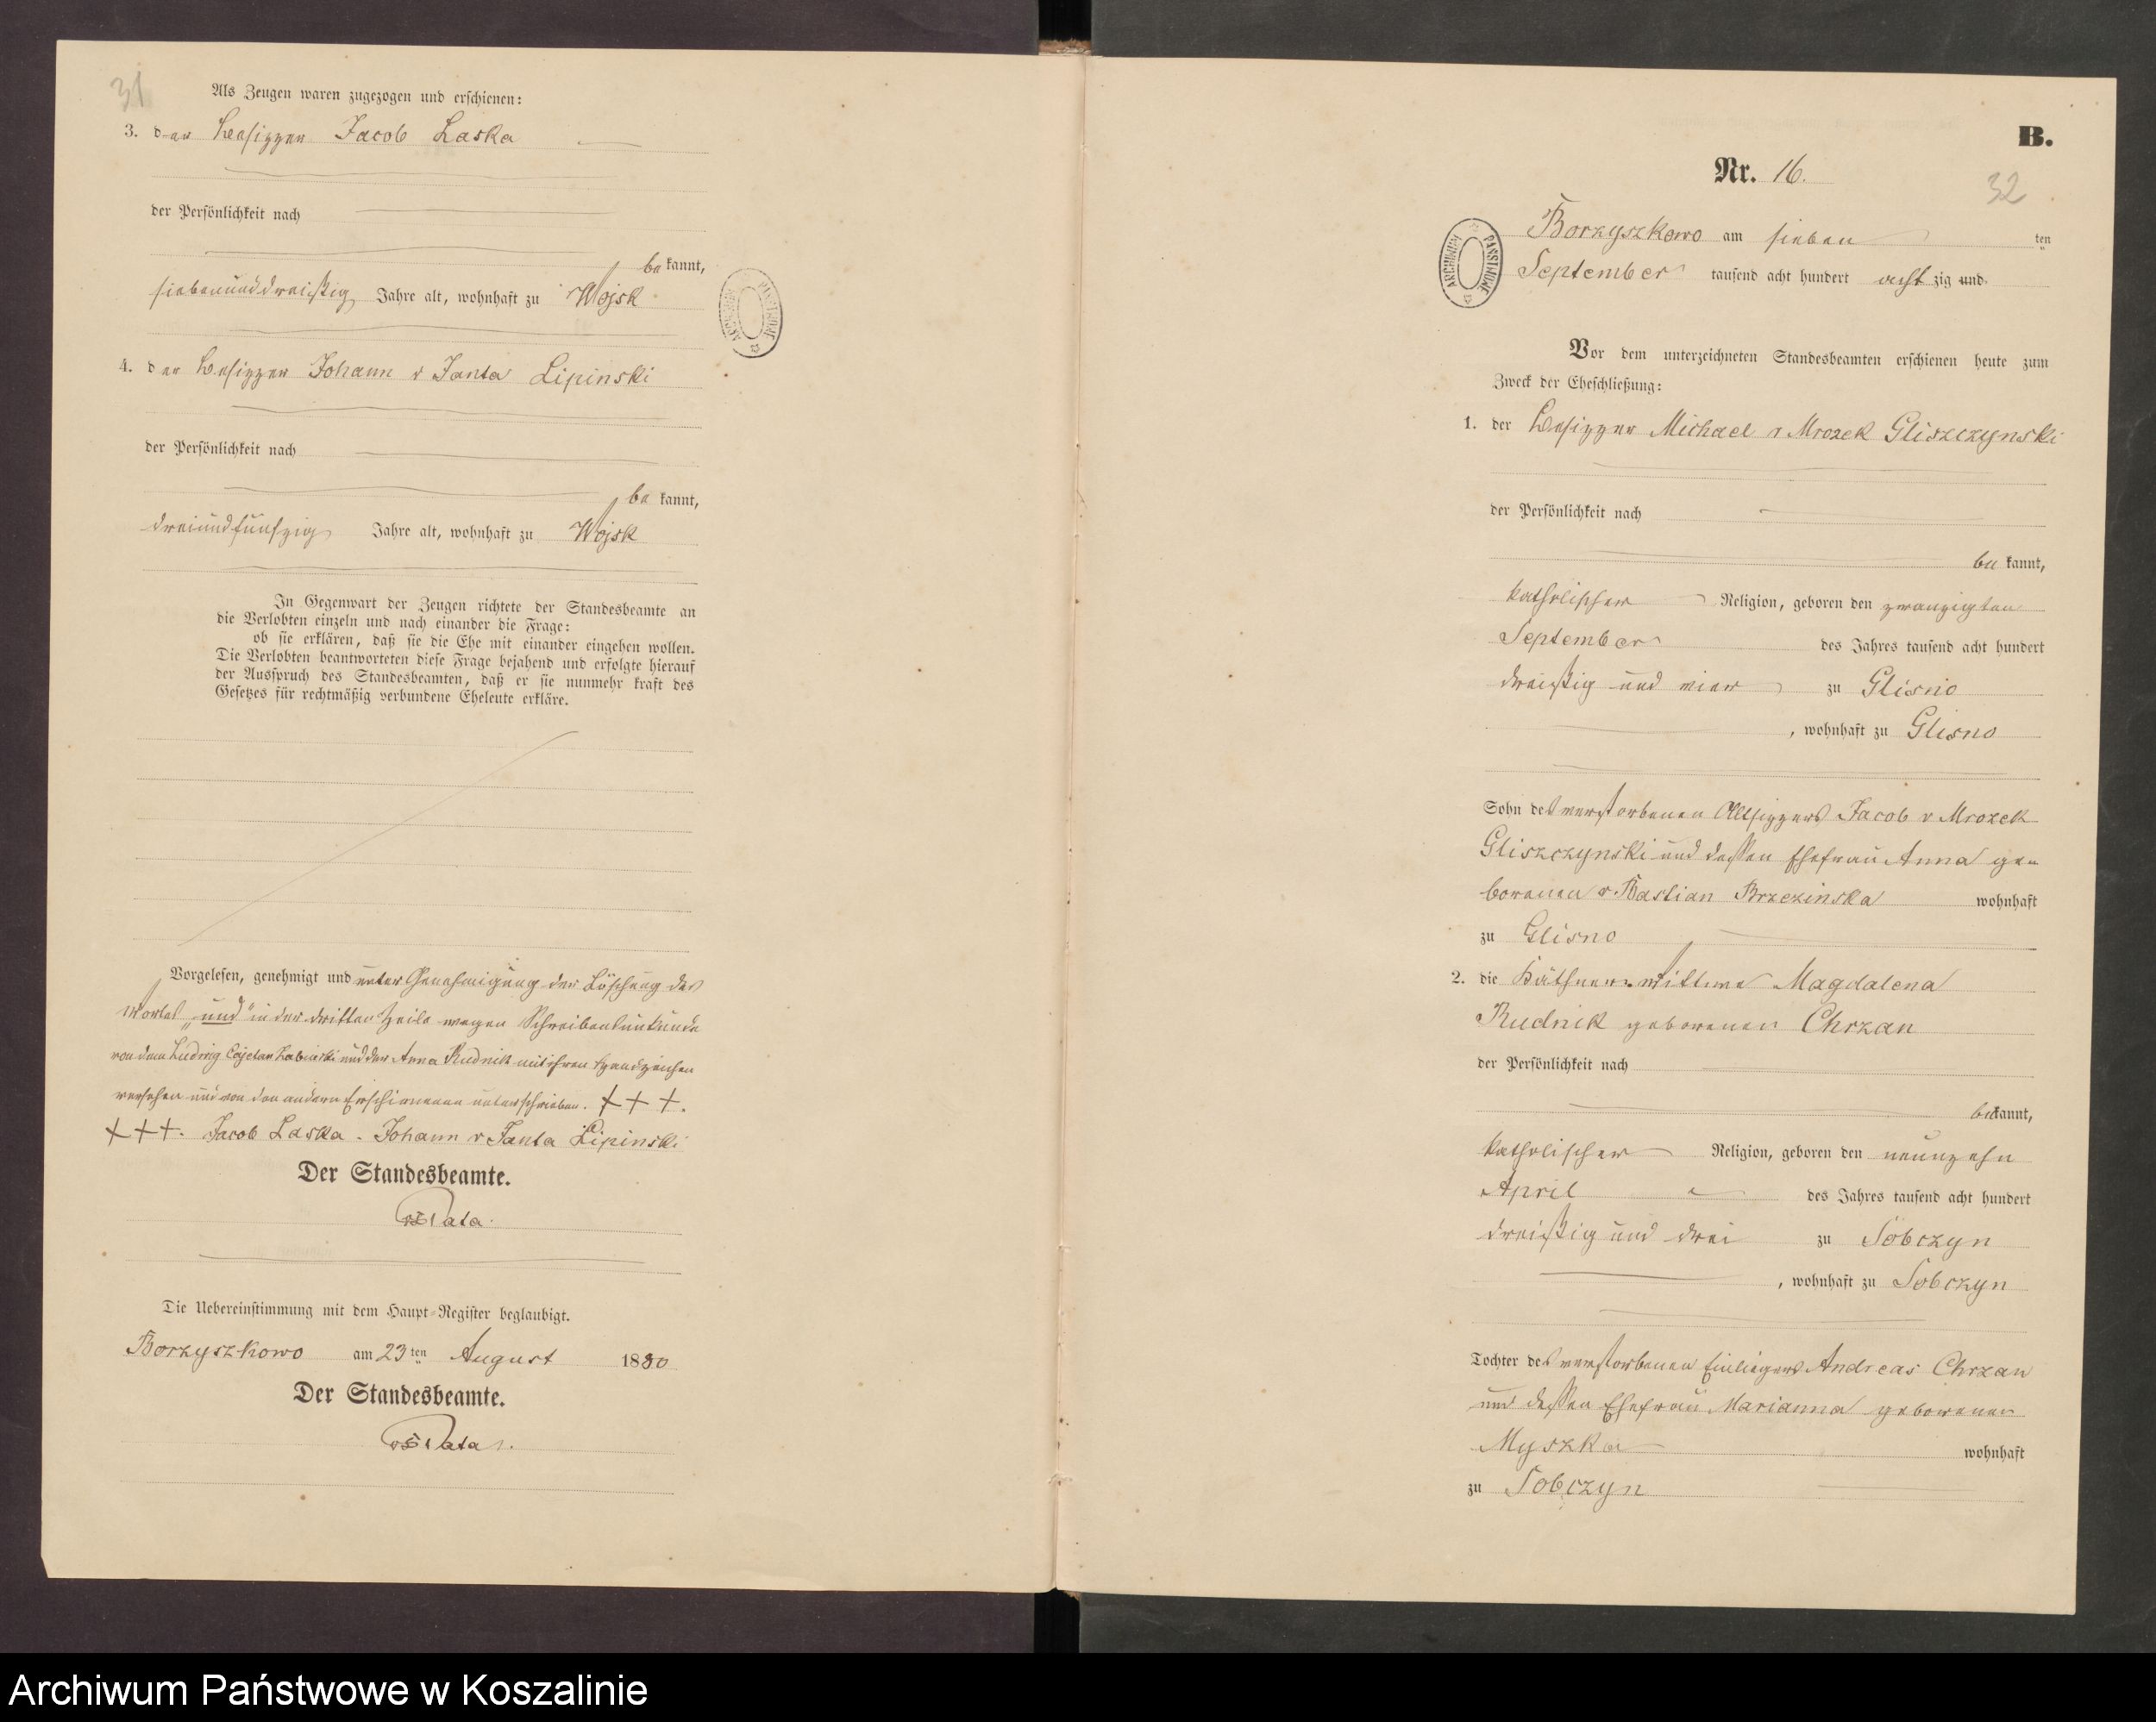 31
Als Zeugen waren zugezogen und erschienen:
3. der Besitzer Jacob Laska
der Persönlichkeit nach
be kannt,
siebenunddreißig Jahre alt, wohnhaft zu Wojsk
4. der Besitzer Johann v Janta Lipinski
der Persönlichkeit nach
be kannt,
dreiundfünfzig Jahre alt, wohnhaft zu Wojsk
In Gegenwart der Zeugen richtete der Standesbeamte an
die Verlobten einzeln und nach einander die Frage:
ob sie erklären, daß sie die Ehe mit einander eingehen wollen.
Die Verlobten beantworteten diese Frage bejahend und erfolgte hierauf
der Ausspruch des Standesbeamten, daß er sie nunmehr kraft des
Gesetzes für rechtmäßig verbundene Eheleute erkläre.
Vorgelesen, genehmigt und unter Genehmigung der Löschung des
Wortes „und" in der dritten Zeile wegen Schreibensunkunde
von dem Ludwig Cajetan und der Anna Rudnik mit ihren Handzeichen
versehen und von den andern Erschienenen unterschrieben. +++.
+++. Jacob Laska. Johann v Janta Lipinski
Der Standesbeamte.
Die Uebereinstimmung mit dem Haupt-Register beglaubigt.
Borzyszkowo am 23ten August 1880
Der Standesbeamte.
ARCHIWUM PAŃSTWOWE
B.
Nr. 16.
32
ARCHIWUM PAŃSTWOWE
Borzyszkowo am sieben ten
September tausend acht hundert acht zig und
Vor dem unterzeichneten Standesbeamten erschienen heute zum
Zweck der Eheschließung:
1. der Besitzer Michael v Mrozek Gliszczynski
der Persönlichkeit nach
be kannt,
katholischer Religion, geboren den zwanzigten
September des Jahres tausend acht hundert
dreißig und vier zu Glisno
, wohnhaft zu Glisno
Sohn des verstorbenen Altsitzers Jacob v Mrozek
Gliszczynski und dessen Ehefrau Anna ge=
borenen v. Bastian Brzezinska wohnhaft
zu Glisno
2. die Käthner=wittwe Magdalena
Rudnik geborenen Chrzan
der Persönlichkeit nach
bekannt,
katholischer Religion, geboren den neunzehn
April des Jahres tausend acht hundert
dreißig und drei zu Sobczyn
, wohnhaft zu Sobczyn
Tochter des verstorbenen Einliegers Andreas Chrzan
und dessen Ehefrau Marianna geborenen
Myszka wohnhaft
zu Sobczyn
Archiwum Państwowe w Koszalinie